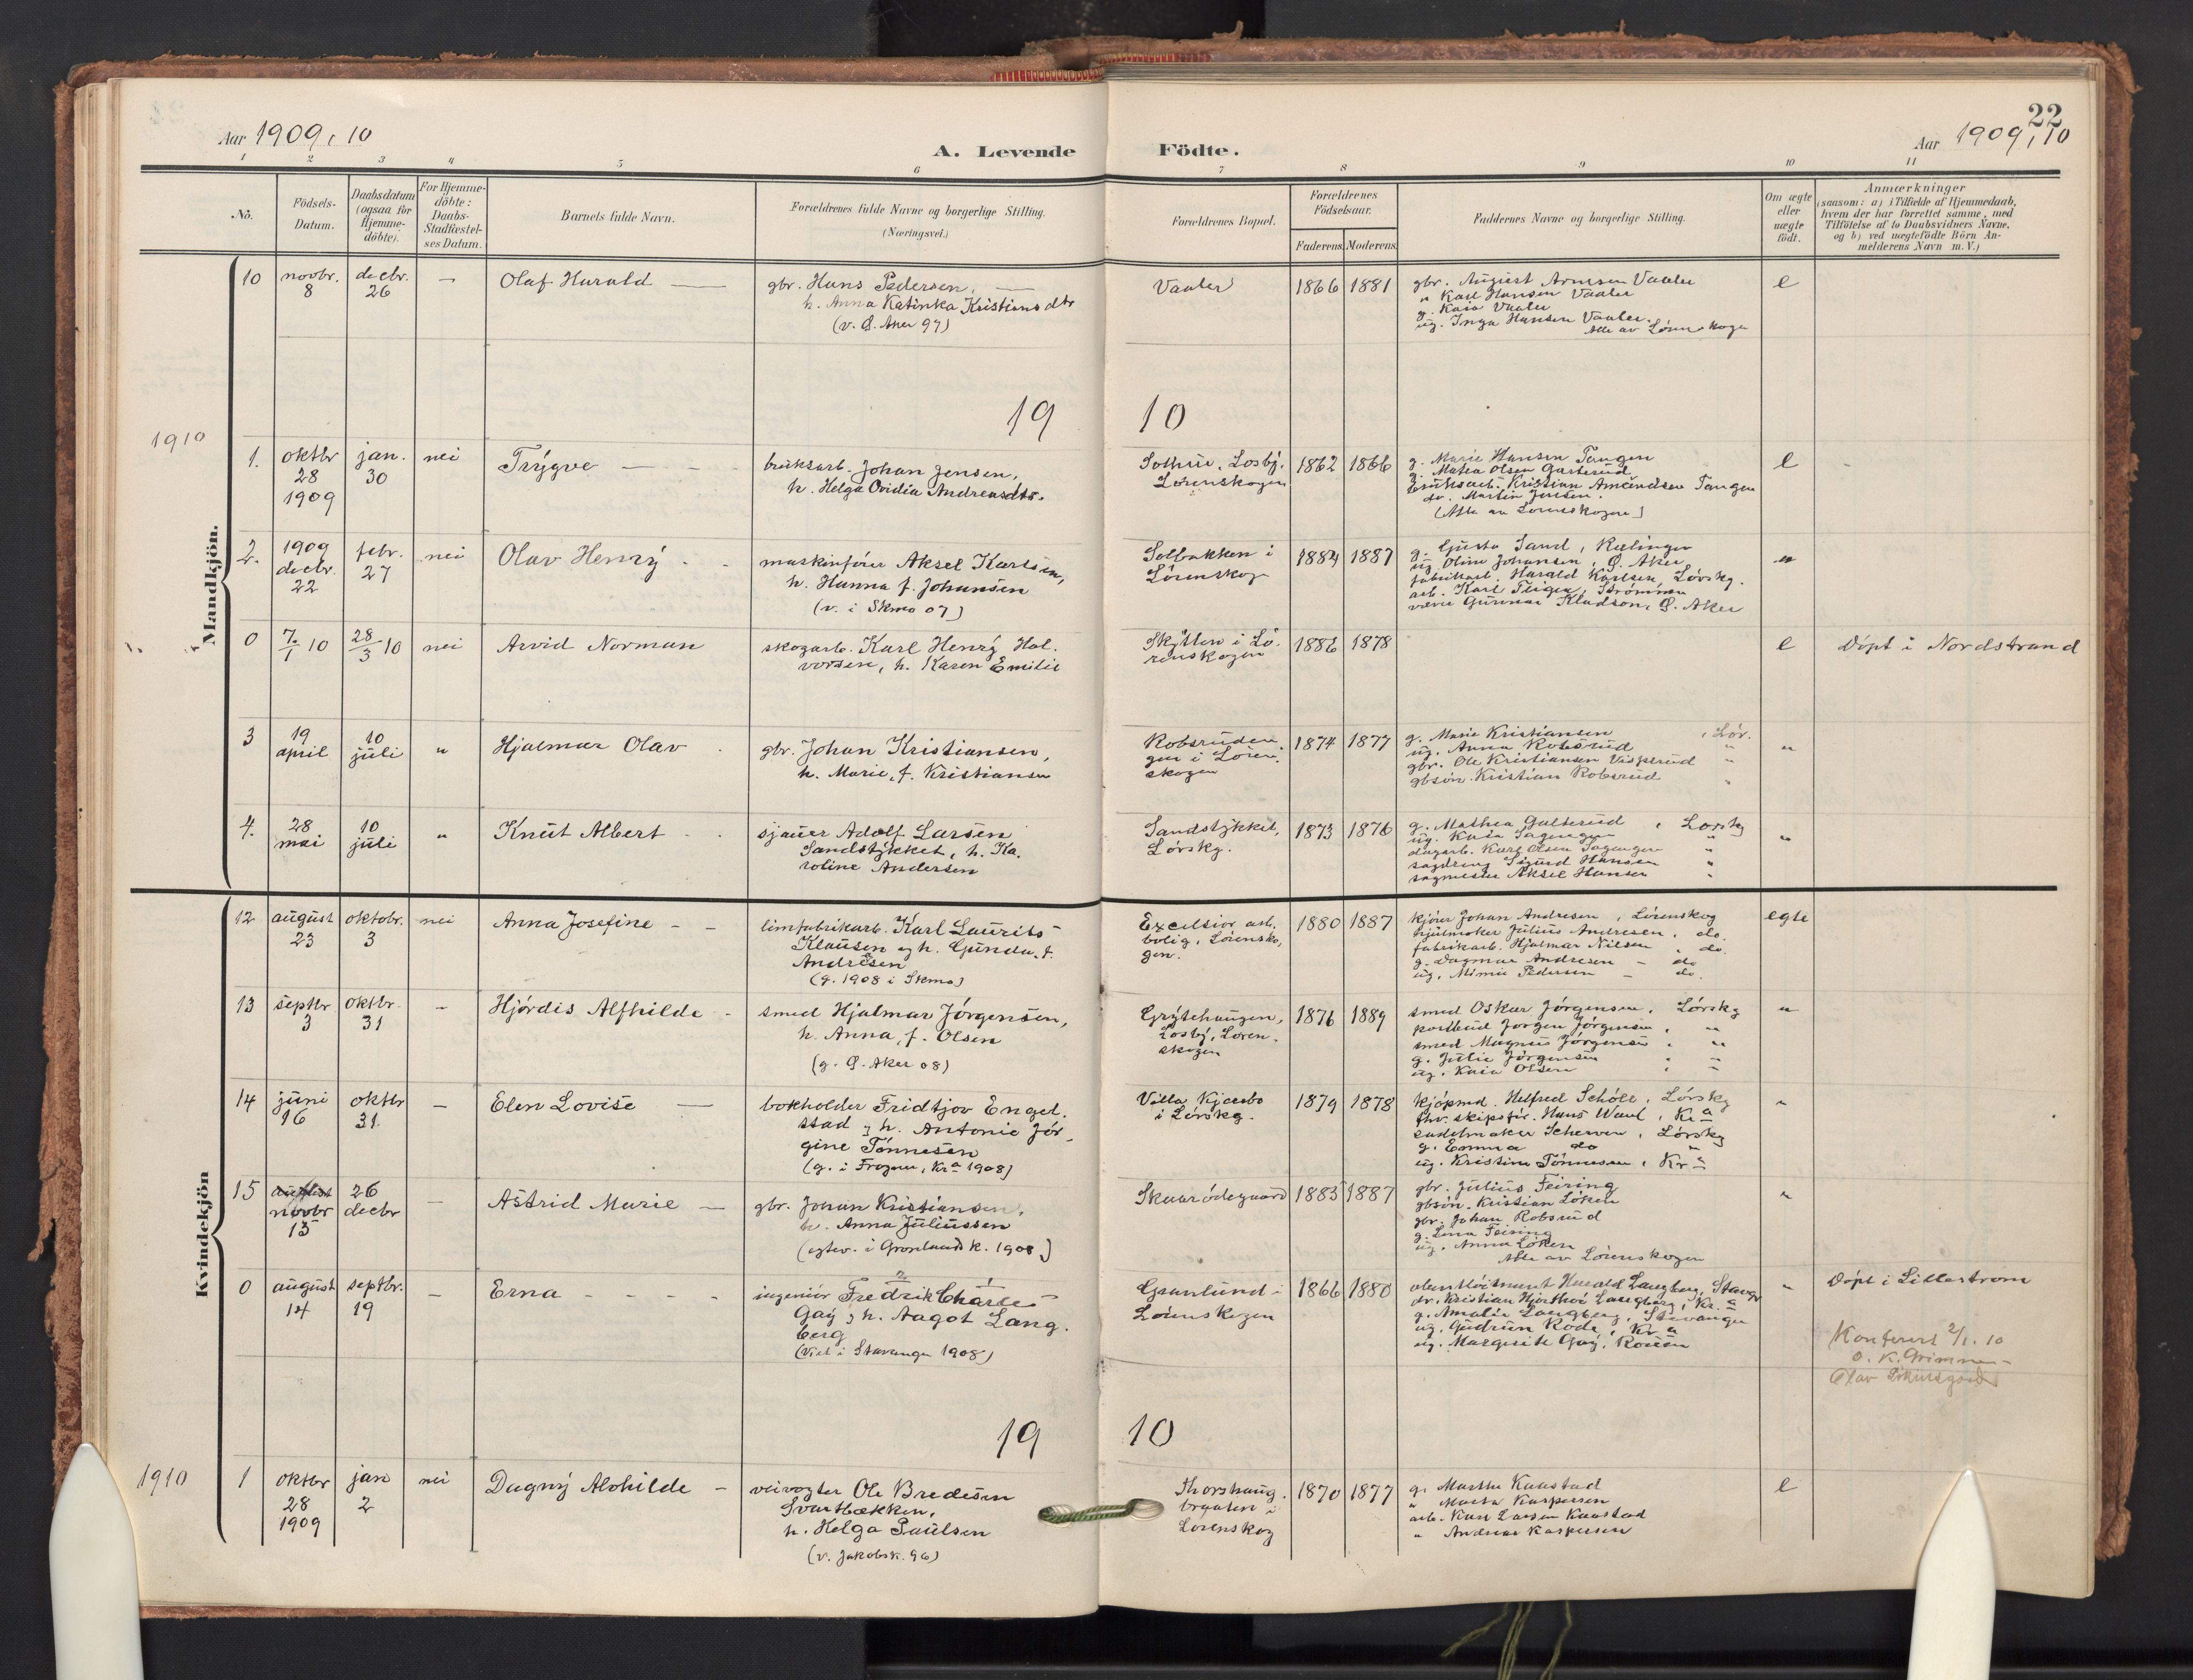 22
Aar 1909, 10
A. Levende Födte.
Aar 1909, 10
1 2 3 4 5 6 7 8 9 10 11
No.
Födsels-Datum.
Daabsdatum (ogsaa for Hjemme-döbte).
For Hjemme-döbte: Daabs-Stadfæstel-ses Datum.
Barnets fulde Navn.
Forældrenes fulde Navne og borgerlige Stilling. (Næringsvei.)
Forældrenes Bopæl.
Forældrenes Födselsaar.
Faderens. Moderens.
Faddernes Navne og borgerlige Stilling.
Om ægte eller uægte født.
Anmærkninger
(saasom: a) i Tilfælde af Hjemmedaab,
hvem der har forrettet samme, med
Tilföielse af to Daabsvidners Navne,
og b) ved uægtefödte Börn An-
melderens Navn m. V.)
Mandkjön.
10 novbr. 8 decbr. 26 — Olaf Harald
gbr. Hans Pedersen,
h. Anna Katinka Kristiansdtr
(v. Ø. Aker 97)
Vaaler 1866 1881
gbr. August Arnesen Vaaler
" Karl Hansen Vaaler
g. Kaia Vaaler
ug. Inga Hansen Vaaler.
Alle av Lørenskogen
e
19 10
1910
1. oktbr 28 1909 jan. 30 nei Trygve
bruksarb. Johan Jensen,
h. Helga Ovidia Andreasdtr.
Losby, Lørenskogen 1862 1866
g. Marie Hansen Tangen
g. Matea Olsen
bruksarb. Kristian Amundsen Tangen
do. Martin Jensen.
(Alle av Lørenskogen)
e
2. 1909 decbr. 22 febr. 27 nei Olav Henry
maskinfører Aksel Karlsen,
h. Hanna f. Johansen
(v. i Skmo 07)
Solbakken i
Lørenskog 1884 1887
g. Gusta Sand, Rælingen
ug. Oline Johansen, Ø. Aker
fabrikarb. Harald Karlsen, Lørskg.
arb. Karl Strømmen
Gunnar Kladson, Ø. Aker
"
0 7/1 10 28/3 10 nei Arvid Norman
skogarb. Karl Henry Hal-
vorsen, h. Karen Emilie
Skytten i Lø-
renskogen 1886 1878
e Døpt i Nordstrand
3 19 april 10 juli " Hjalmar Olav
gbr. Johan Kristiansen,
h. Marie, f. Kristiansen
Robsruden-
gen i Løren-
skogen 1874 1877
g. Marie Kristiansen, Lør.
ug. Anna Robsrud "
gbr. Ole Kristiansen Visperud "
gbsøn. Kristian Robsrud "
"
4. 28 mai 10 juli " Knut Albert
sjauer Adolf Larsen
Sandstykket, h. Ka-
roline Andersen
Sandstykket,
Lørskg. 1873 1876
g. Mathea Galterud, Lørskg
ug. Kaia Sagengen "
dagarb. Karl Olsen Sagengen "
sagdreng Sigurd Hansen "
sagmester Aksel Hansen "
"
Kvindekjön
12 august 23 oktobr. 3 nei Anna Josefine
limfabrikarb. Karl Laurits
Klausen og h. Gunda, f.
Andresen
(g. 1908 i Skmo)
Excelsior arb.
bolig, Lørensko-
gen. 1880 1887
kjører Johan Andresen, Lørenskog
hjulmaker Julius Andresen, do.
fabrikarb. Hjalmar Nilsen, do.
g. Dagmar Andresen — do
ug. Mimie Pedersen — do.
egte
13 septbr 3 oktbr. 31 — Hjørdis Alfhilde
smed Hjalmar Jørgensen,
h. Anna, f. Olsen
(g. Ø. Aker 08)
Grytehaugen,
Losby, Løren-
skogen 1876 1889
smed Oskar Jørgensen, Lørskg
postbud Jørgen Jørgensen, "
smed Magnus Jørgensen, "
g. Julie Jørgensen "
ug. Kaia Olsen "
"
14 juni 16 oktbr 31. — Elen Lovise
bokholder Fridtjov Engel-
stad og h. Antonie Jør-
gine Tønnesen
(g. i Frogner, Kr.a 1908)
Villa Kjærbo
i Lørskg. 1879 1878
kjøpmd. Helfred Schøll, Lørskg
fhv. skipsfør. Hans Waul, Kr.a
sadelmaker Scherven, Lørskg
g. Emma do "
ug. Kristine Tønnesen, Kr.a
"
15 novbr 15 26 decbr — Astrid Marie
gbr. Johan Kristiansen,
h. Anna Juliussen
(egtev. i Grønlands k. 1908)
Skaarødegaard 1883 1887
gbr. Julius Feiring
gbsøn. Kristian Løken
gbr. Johan Robsrud
g. Lina Feiring
ug. Anna Løken
Alle av Lørenskogen
"
0 august 14 septbr. 19 — Erna
ingeniør Fredrik Charles
Gay og h. Aagot Lang-
berg
(viet i Stavanger 1908)
Granlund i
Lørenskogen 1866 1880
Harald Langberg, Stavgr
dr. Kristian Hjorthøi Langberg, Kr.a
g. Amalie Langberg, Stavanger
ug. Gudrun Rode, Kr.a
ug. Margrete Gay, Rouen
" Døpt i Lillestrøm
Konferert 2/1. 10
O. K. Grimnes
Olav
19 10
1910
1 oktbr 28 1909 jan 2 nei Dagny Alvhilde
veivogter Ole Bredesen
Svartbækken,
h. Helga Paulsen
(v. Jakobsk. 96)
Thorshaug
braaten i
Lørenskog 1870 1877
g. Marthe Kaastad
" Marta Kaspersen
arb. Karl Larsen Kaastad
" Andreas Kaspersen
e